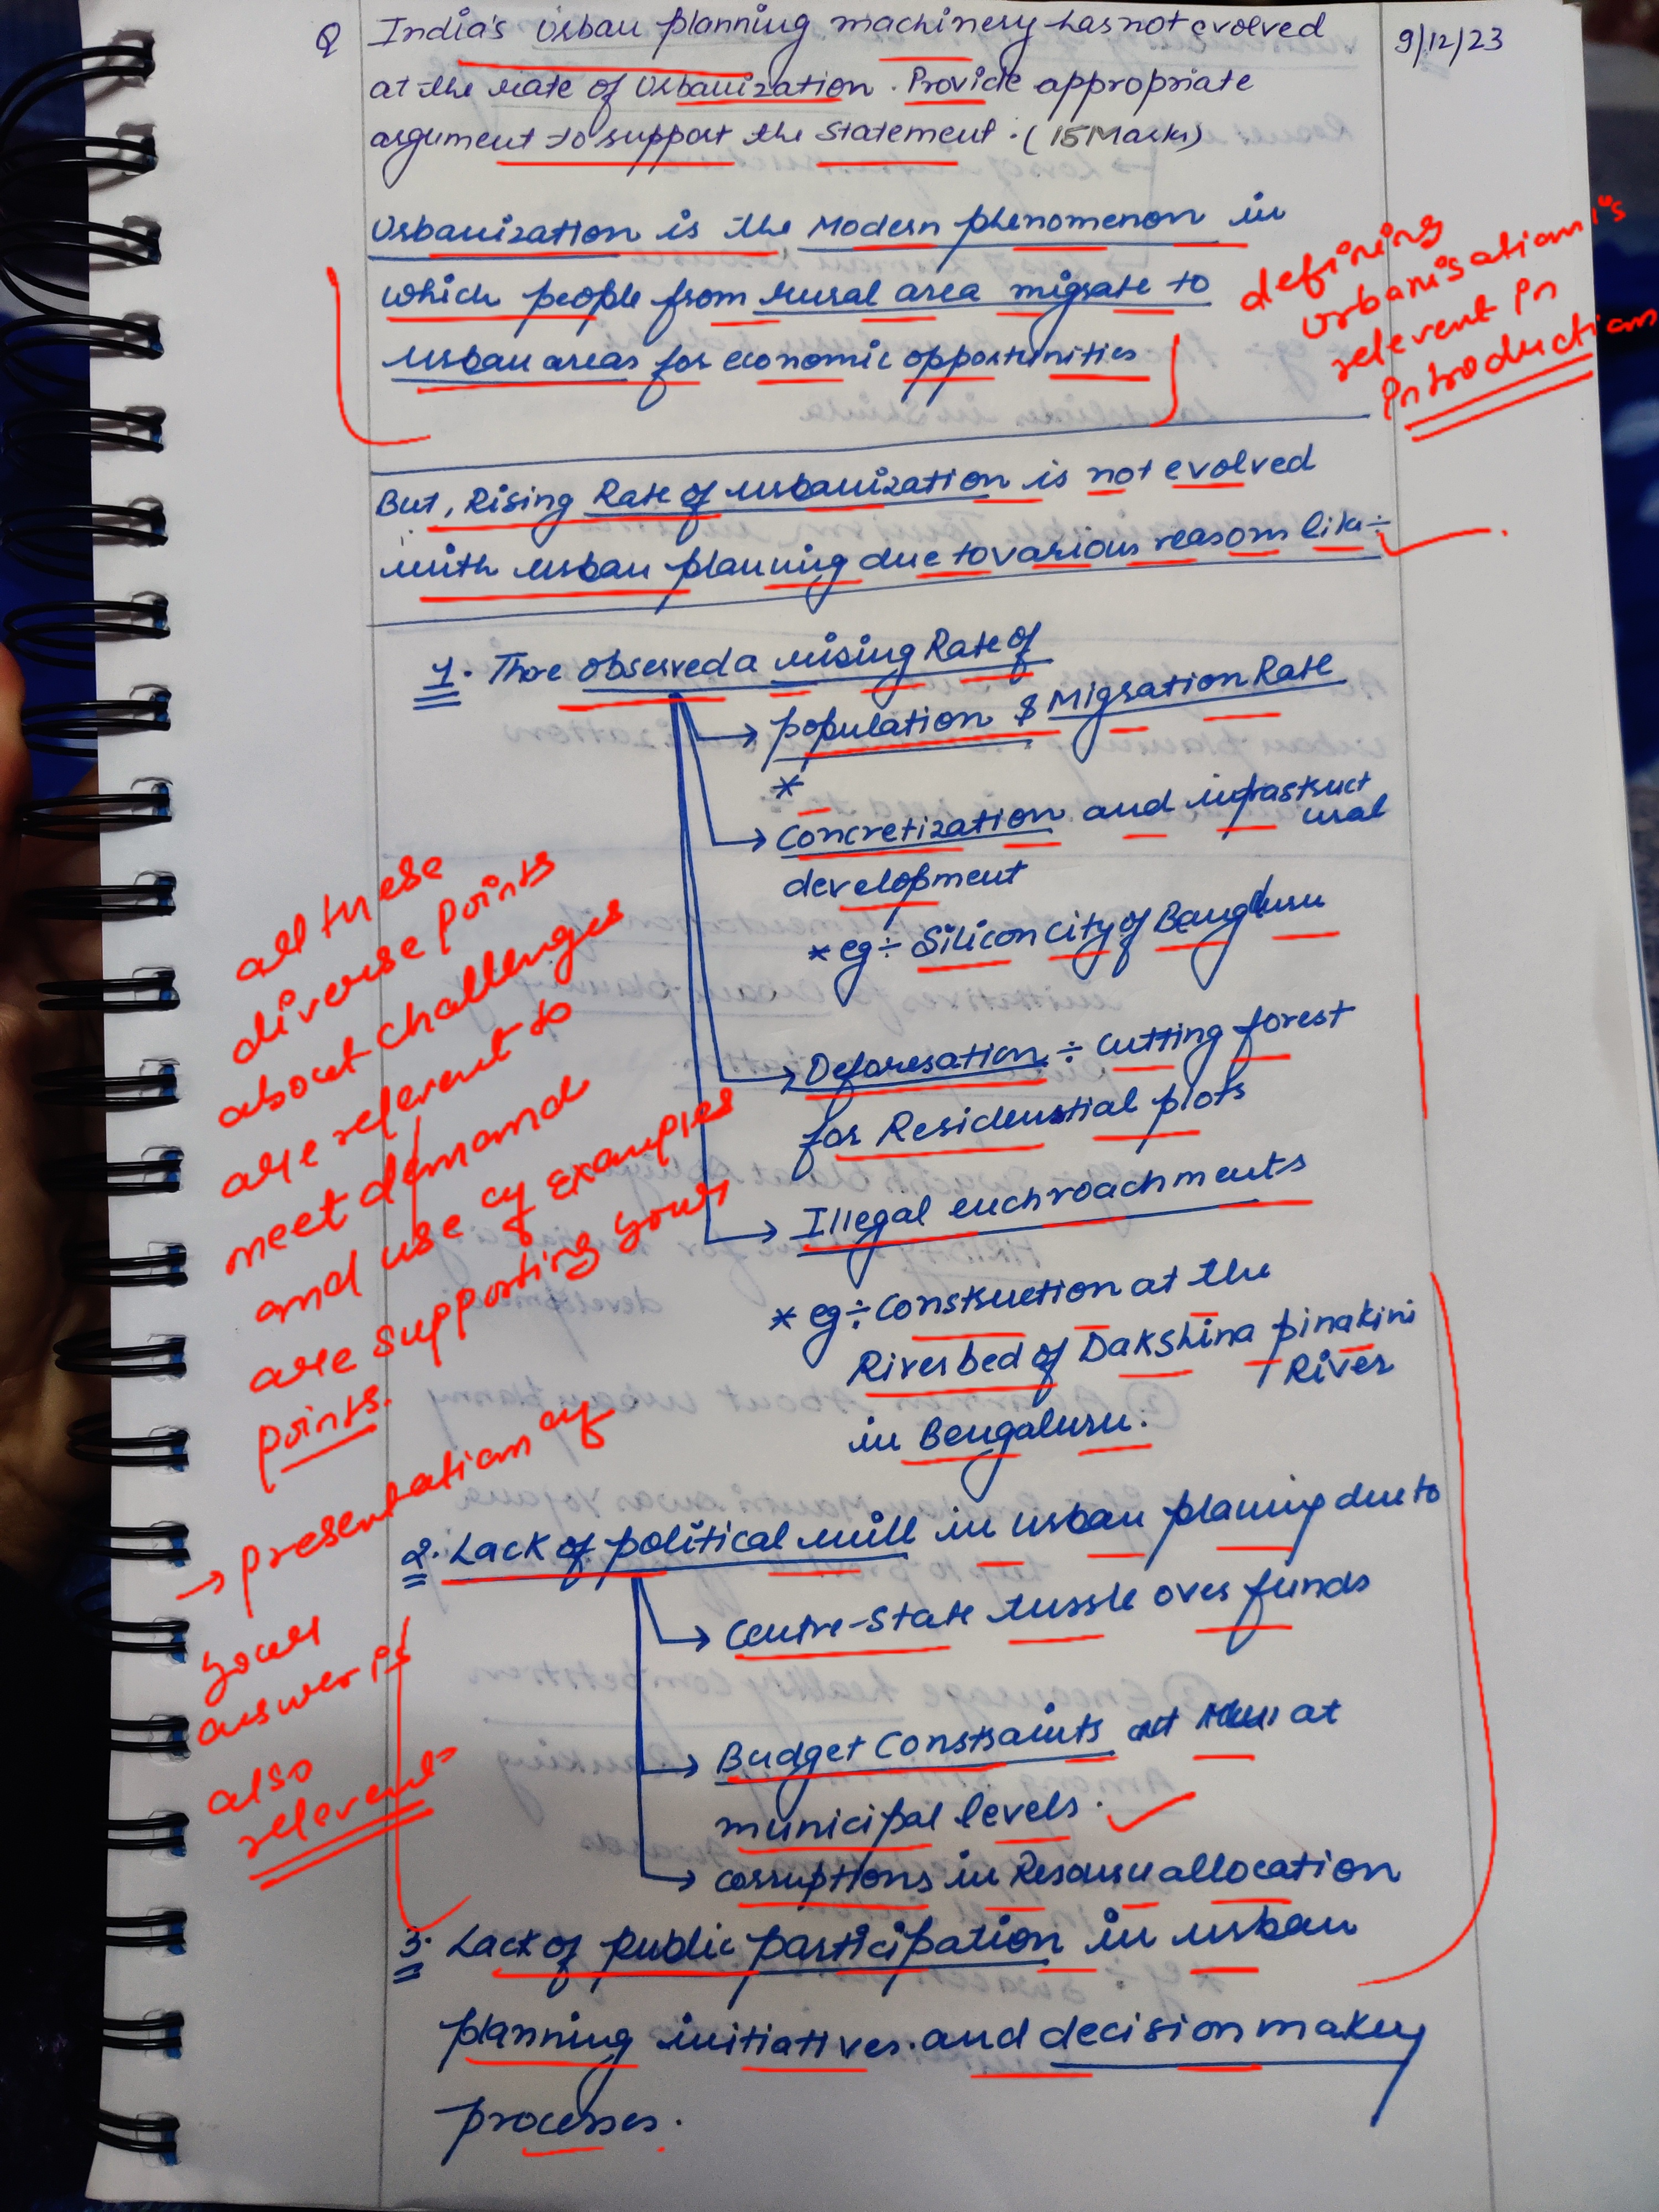 Q India's urban planning machinery has not evolved
9/12/23
at the rate of Urbanization. Provide appropriate
argument to support the statement. (15 Marks)
Urbanization is the Modern phenomenon in
which people from rural area migrate to
urban areas for economic opportunities
defining
urbanisation is
relevent in
introduction
But, Rising Rate of urbanization is not evolved
with urban planning due to various reasons like ÷
1. There observed a rising Rate of
→ population & Migration Rate
*
→ Concretization and infrastruct
ural
development
* eg ÷ Silicon city of Bangluru
→ Deforesation ÷ cutting forest
for Residenstial plots
→ Illegal enchroachments
* eg ÷ Construction at the
River bed of Dakshina pinakini
River
in Bengaluru.
all these
diverse points
about challenges
are relevent to
meet demand
and use of examples
are supporting your
points.
→ presentation of
your
answer is
also
relevent
2. Lack of political will in urban planing due to
→ Centre-State tussle over funds
→ Budget Constraints at
at
municipal levels.
→ corruptions in Resource allocation
3. Lack of public participation in urban
planning initiatives and decision making
processes.